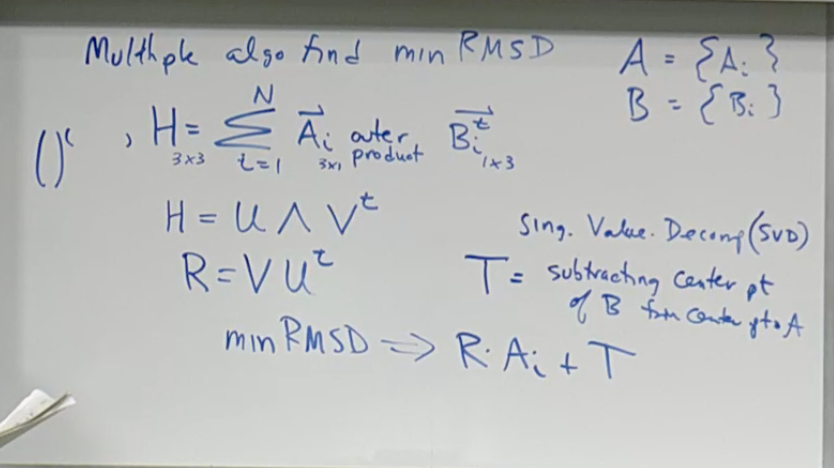 Multiple algo find min RMSD
A = {Ai}
B = {Bi}
()ᵗ , H = Σ Ai outer product Biᵗ
N
t=1
3x3
3x1
1x3
H = U Λ Vᵗ
Sing. Value. Decomp (SVD)
R = V Uᵗ
T = subtracting center pt
of B from center pt A
min RMSD ⇒ R·Ai + T